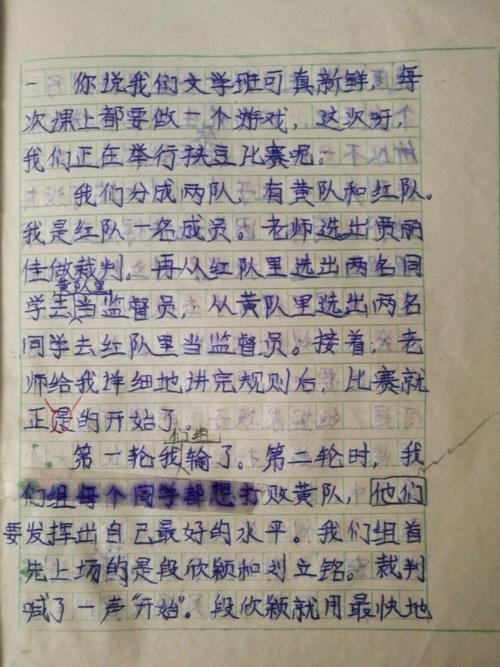 你说我们文学班可真新鲜，每
次课上都要做一个游戏，这次呀，
我们正在举行扶豆比赛呢。
我们分成两队，有黄队和红队。
我是红队一名成员。老师选出贾丽
佳做裁判。再从红队里选出两名同
黄队里
学去当监督员，从黄队里选出两名
同学去红队里当监督员。接着，老
师给我详细地讲完规则后，比赛就
正是的开始了。
们组
第一轮我输了。第二轮时，我
们组每个同学都想打败黄队，他们
要发挥出自己最好的水平。我们组首
先上场的是段欣颖和刘立铭。裁判
喊了一声“开始”。段欣颖就用最快地